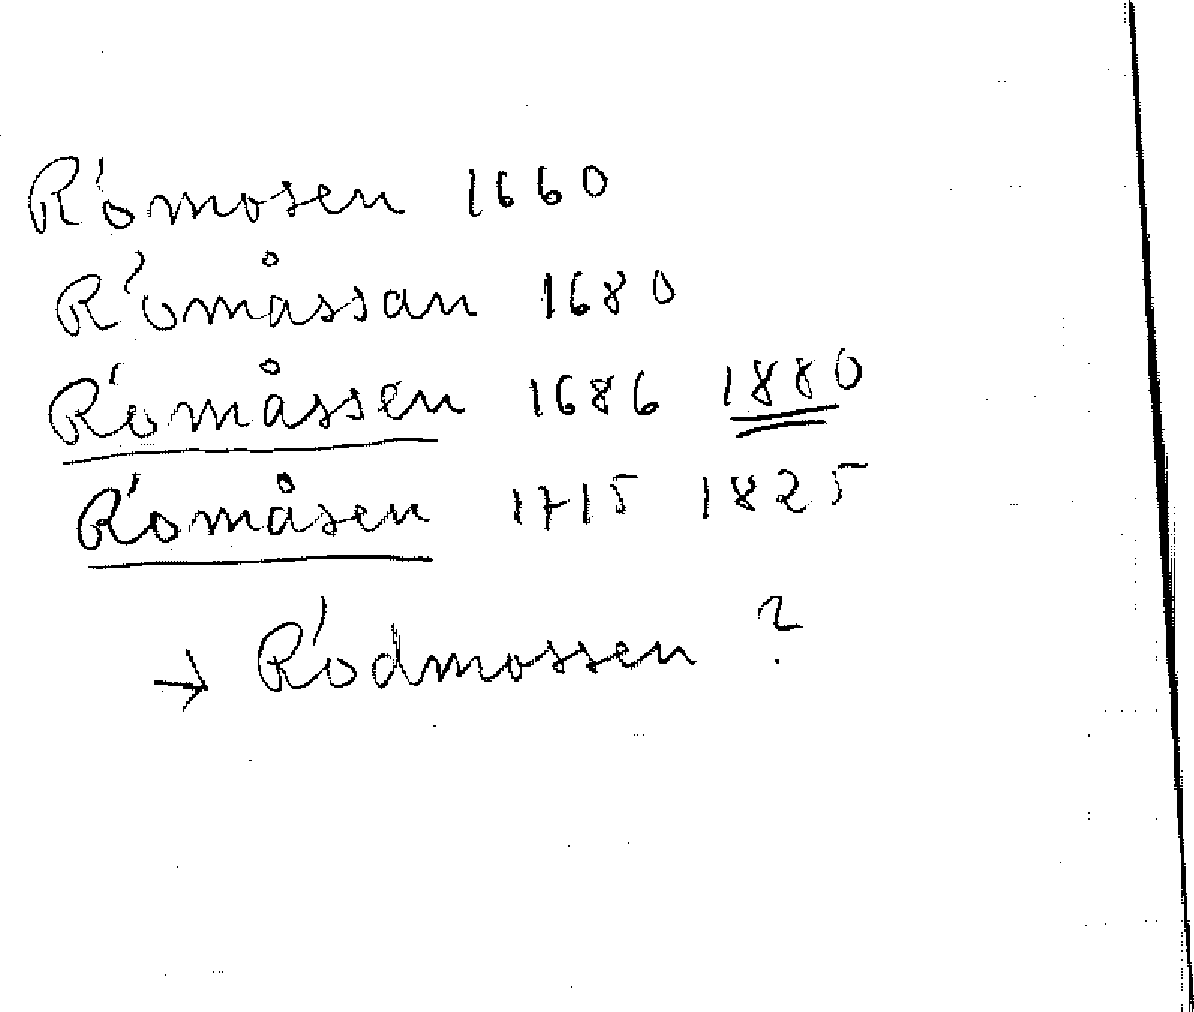 Römosen 1660
Römåssan 1680
Römåssen 1686 1880
Römåsen 1715 1825
→ Rödmossen ?